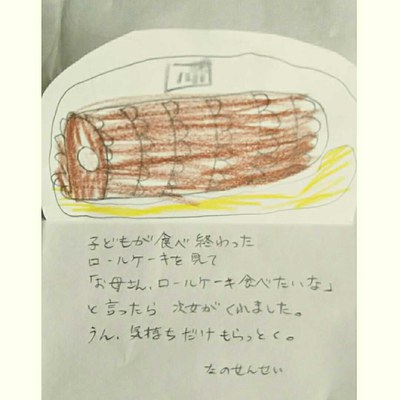 子どもが食べ終わった
ロールケーキを見て
「お母さん、ロールケーキ食べたいな」
と言ったら 次女がくれました。
うん、気持ちだけもらっとく。
なのせんせい